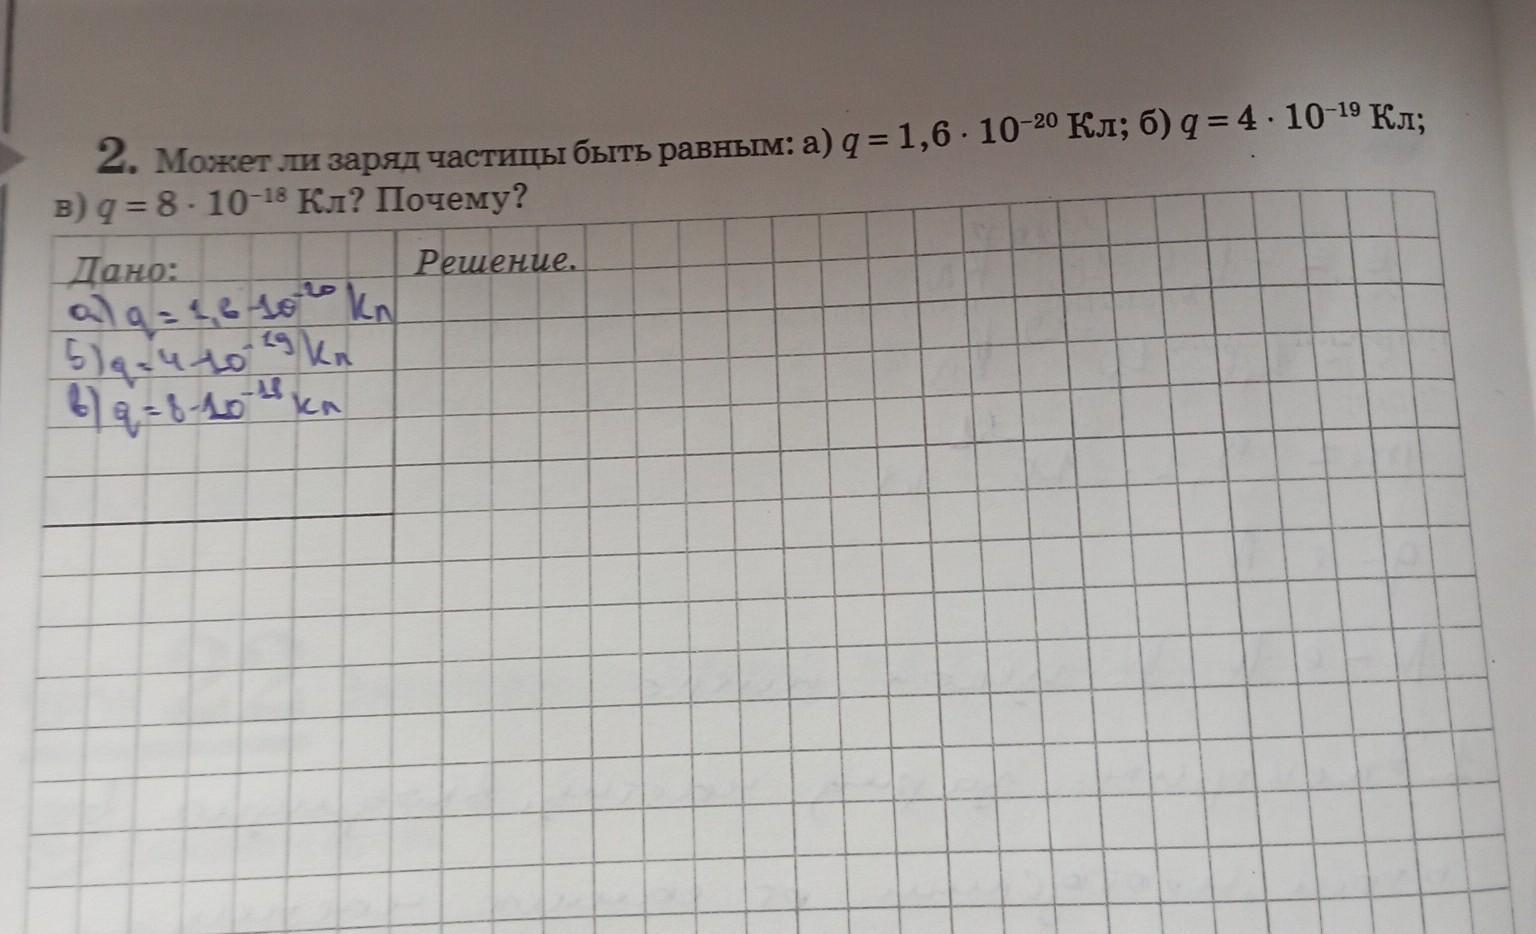 2. Может ли заряд частицы быть равным: а) q = 1,6 · 10⁻²⁰ Кл; б) q = 4 · 10⁻¹⁹ Кл;
в) q = 8 · 10⁻¹⁸ Кл? Почему?
Дано:
Решение.
а) q = 1,6·10⁻²⁰ Кл
б) q = 4·10⁻¹⁹ Кл
в) q = 8·10⁻¹⁸ Кл